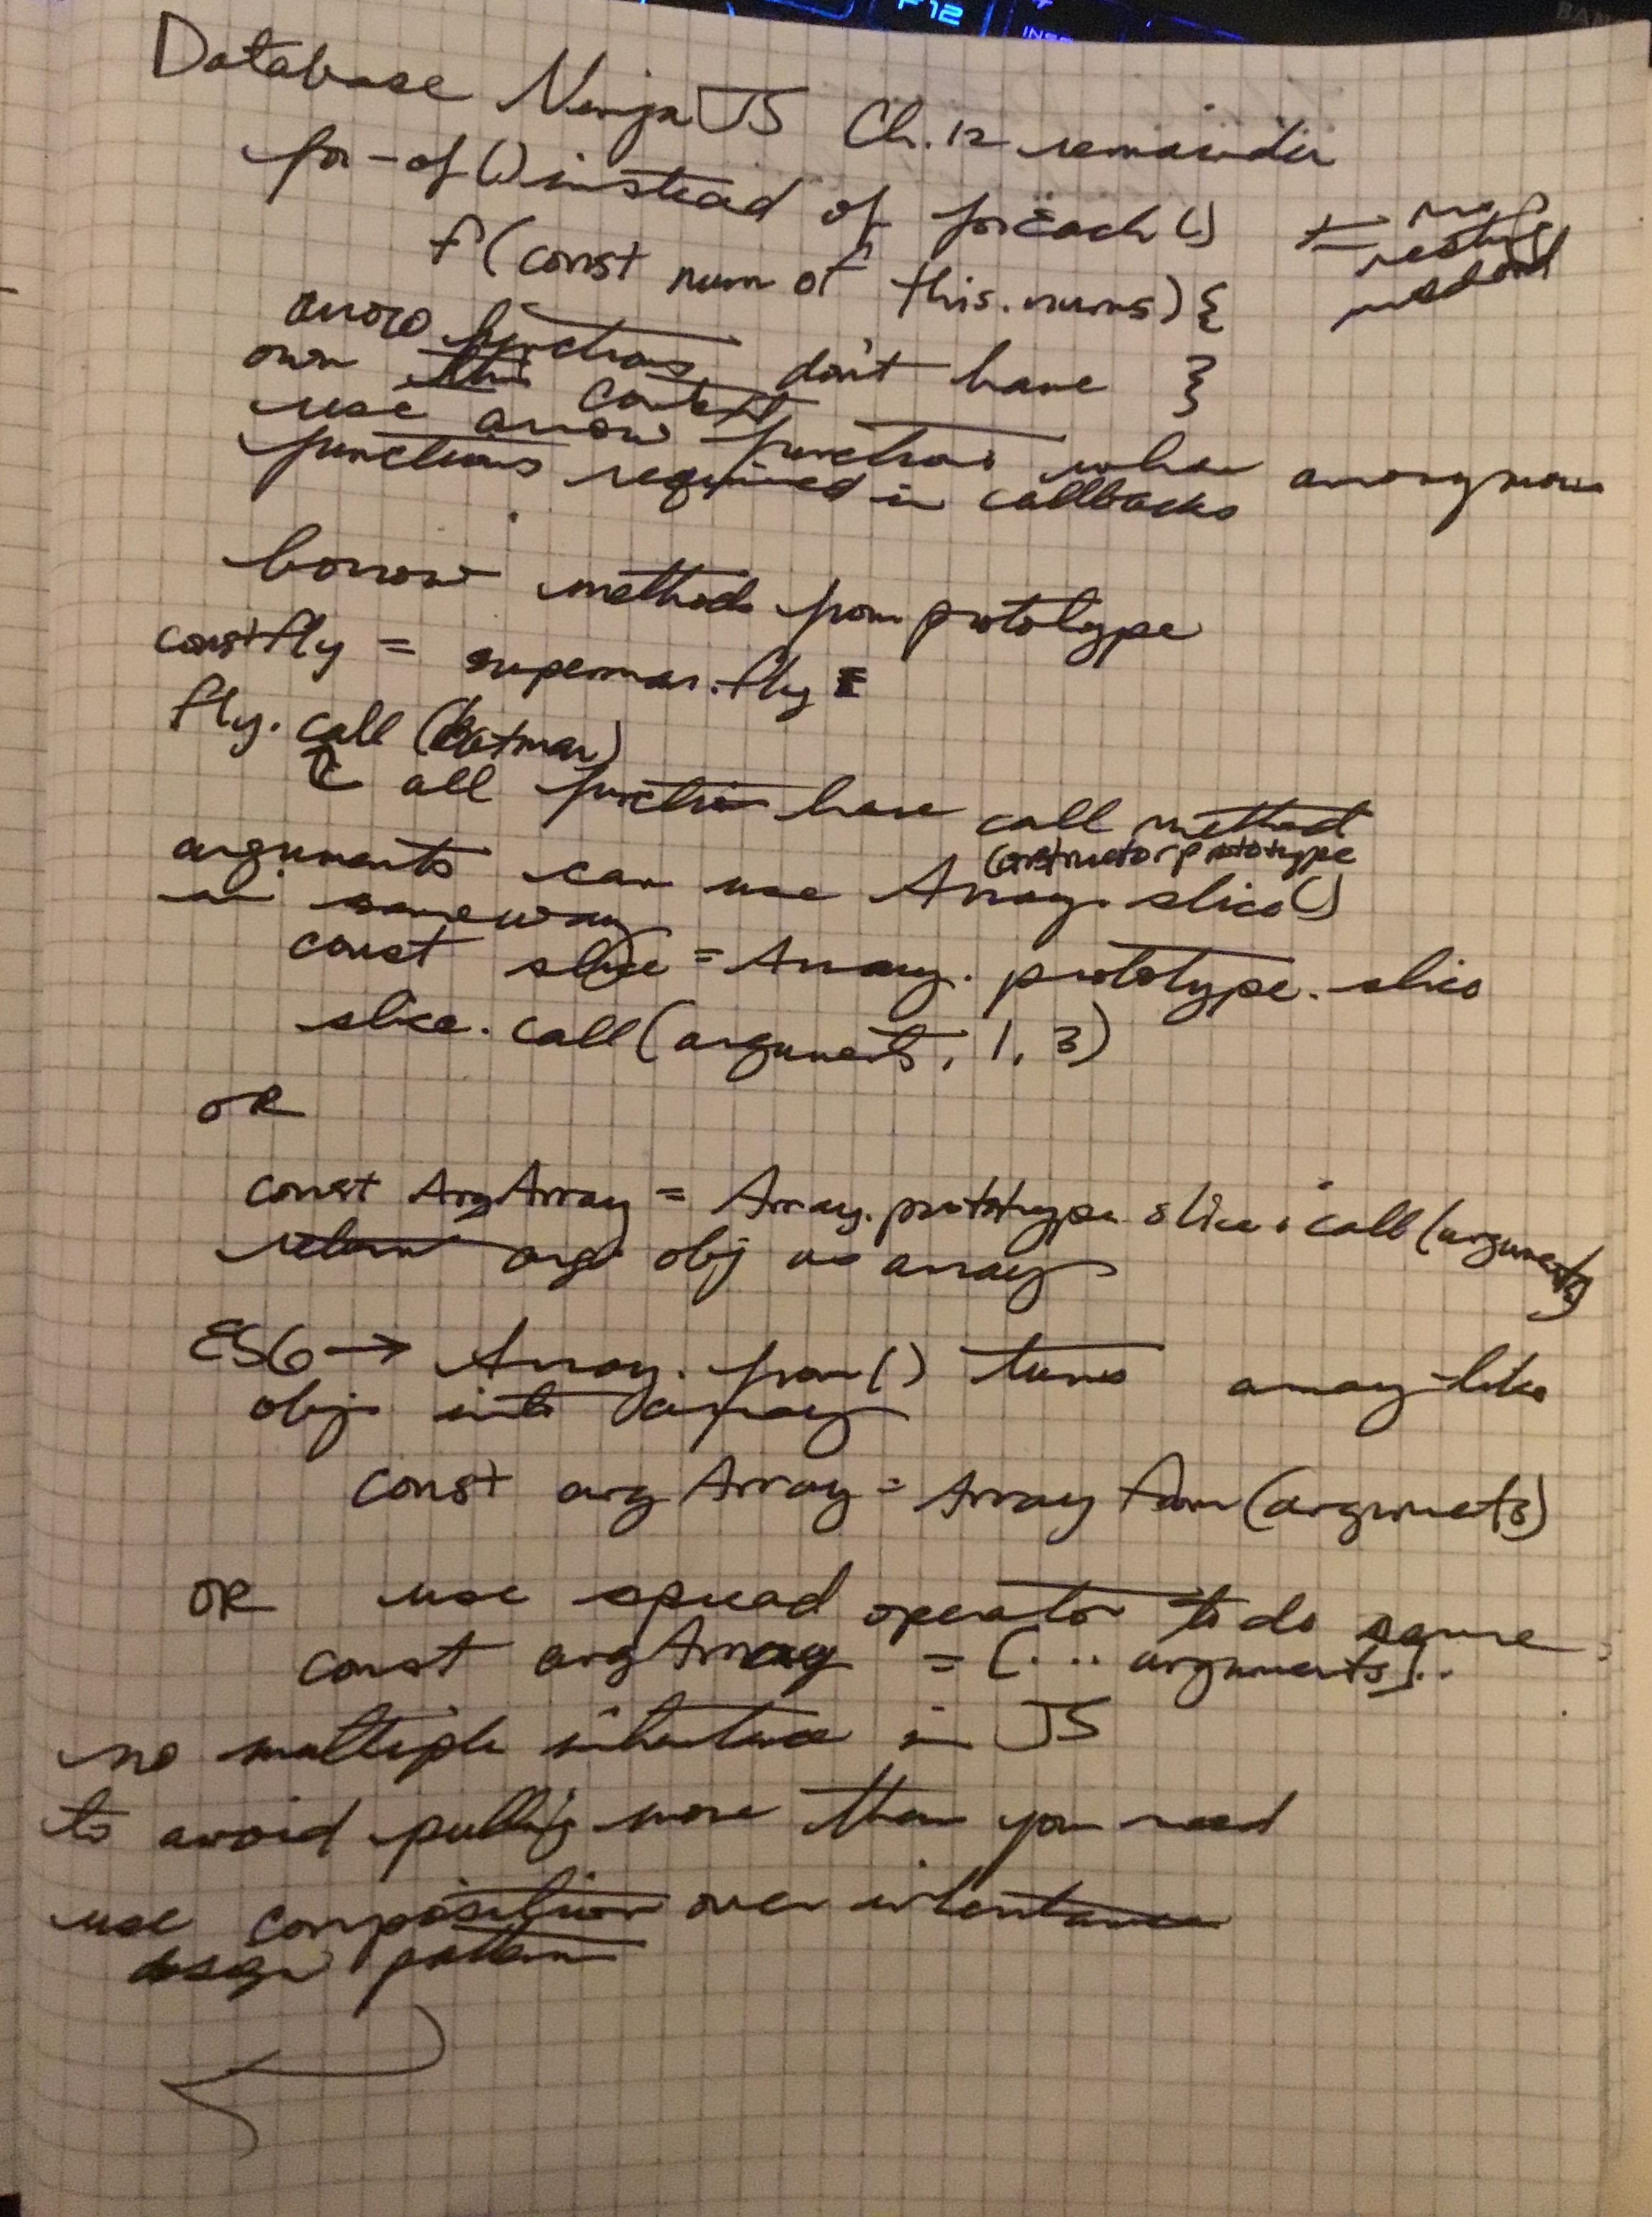 F12
INS
Database Ninja JS Ch. 12 remainder
for-of() instead of forEach() ← no
nesting
method
f (const num of this.nums) {
arrow functions don't have }
own this context
use arrow functions when anonymous
functions required in callbacks
borrow methods from prototype
const fly = superman.fly
fly.call(batman)
all function have call method
constructor prototype
arguments can use Array.slice()
in same way
const slice = Array.prototype.slice
slice.call(arguments, 1, 3)
OR
const ArgArray = Array.prototype.slice.call(arguments)
return args obj as array
ES6 → Array.from() turns array-like
obj into array
const argArray = Array from(arguments)
OR use spread operator to do same
const argArray = [...arguments]..
no multiple inheritance in JS
to avoid pulling more than you need
use composition over inheritance
design pattern